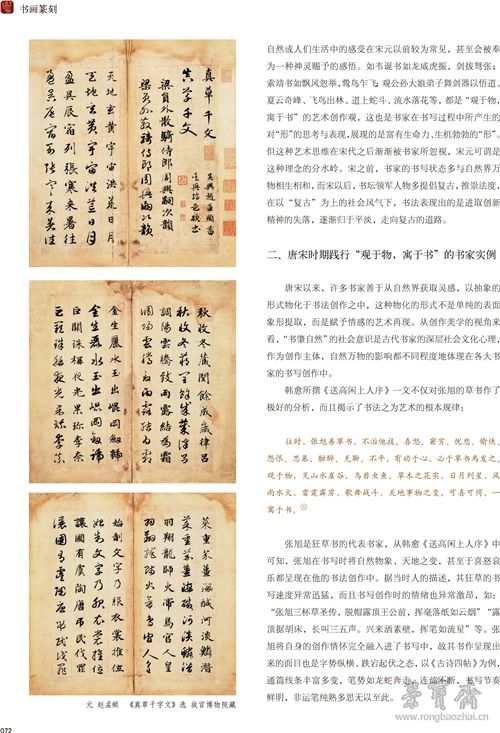 书画篆刻
真草千字文
吴兴赵孟頫书
梁员外散骑侍郎周兴嗣次韵
天地玄黄宇宙洪荒日月
盈昃辰宿列张寒来暑往
秋收冬藏闰余成岁律吕
调阳云腾致雨露结为霜
金生丽水玉出崑冈剑号
巨阙珠称夜光果珍李柰
菜重芥姜海咸河淡鳞潜
羽翔龙师火帝鸟官人皇
始制文字乃服衣裳推位
让国有虞陶唐吊民伐罪
元 赵孟頫 《真草千字文》选 故宫博物院藏
072
自然或人们生活中的感受在宋元以前较为常见，甚至会被奉
为一种神灵赐予的感悟。如韦诞书如龙威虎振，剑拔弩张；
索靖书如飘风忽举，鸷鸟乍飞；观公孙大娘弟子舞剑器以悟道、
夏云奇峰、飞鸟出林、道上蛇斗、流水落花等，都是“观于物，
寓于书”的艺术创作观，这也是书家在书写过程中所产生的
对“形”的思考与表现，展现的是富有生命力、生机勃勃的“形”。
但这种艺术思维在宋代之后渐渐被书家所忽视，宋元可谓是
这种理念的分水岭。宋之前，书家的书写状态多与自然界万
物相生相和，而宋以后，书坛领军人物多提倡复古，推崇法度，
在以“复古”为上的社会风气下，书法表现出的是进取创新
精神的失落，逐渐归于平淡，走向复古的道路。
二、唐宋时期践行“观于物，寓于书”的书家实例
唐宋以来，许多书家善于从自然界获取灵感，以抽象的
形式物化于书法创作之中，这种物化的形式不是单纯的表面
象形提取，而是赋予情感的艺术再现。从创作美学的视角来
看，“书肇自然”的社会意识是古代书家的深层社会文化心理，
作为创作主体，自然万物的影响都不同程度地体现在各大书
家的书写创作中。
韩愈所撰《送高闲上人序》一文不仅对张旭的草书作了
极好的分析，而且揭示了书法之为艺术的根本规律：
往时，张旭善草书，不治他技。喜怒、窘穷、忧悲、愉佚、
怨恨、思慕、酣醉、无聊、不平，有动于心，必于草书焉发之。
观于物，见山水崖谷，鸟兽虫鱼、草木之花实，日月列星，风
雨水火，雷霆霹雳，歌舞战斗，天地事物之变，可喜可愕，一
寓于书。
张旭是狂草书的代表书家，从韩愈《送高闲上人序》中
可知，张旭在书写时将自然物象、天地之变，甚至于喜怒哀
乐都呈现在他的书法创作中。据当时人的描述，其狂草的书
写速度异常迅猛，而且书写创作时的情绪也异常激昂，如：
“张旭三杯草圣传，脱帽露顶王公前，挥毫落纸如云烟”“露
顶据胡床，长叫三五声。兴来洒素壁，挥笔如流星”等。张
旭将自身的创作情怀完全融入进了书写中，故其书作呈现出
来的面目也是字势纵横、跌宕起伏之态，以《古诗四帖》为例，
通篇线条丰富多变，笔势如龙蛇奔走，连绵不断，书写节奏
鲜明，非运笔纯熟多思无以至此。
荣宝斋
www.rongbaozhai.cn